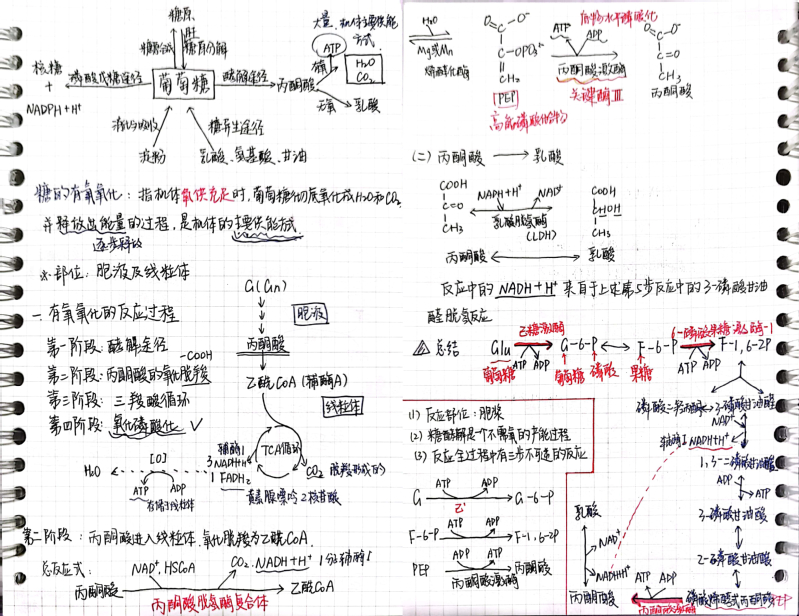 糖原
糖原合成 糖原分解
核糖
+
NADPH+H⁺
磷酸戊糖途径
葡萄糖
酵解途径
丙酮酸
有氧
ATP
H₂O
CO₂
大量,机体主要供能
方式
无氧
乳酸
消化与吸收
糖异生途径
淀粉
乳酸、氨基酸、甘油
糖的有氧氧化:指机体氧供充足时,葡萄糖彻底氧化成H₂O和CO₂
并释放出能量的过程,是机体的主要供能方式
逐步释放
部位:胞液及线粒体
一.有氧氧化的反应过程
第一阶段:酵解途径
-COOH
第二阶段:丙酮酸的氧化脱羧
第三阶段:三羧酸循环
第四阶段:氧化磷酸化
G(Gn)
胞液
丙酮酸
乙酰CoA(辅酶A)
线粒体
TCA循环
CO₂ 脱羧形成的
辅酶1
3 NADH+H⁺
1 FADH₂
黄素腺嘌呤2核苷酸
H₂O
[O]
ATP ADP
第二阶段:丙酮酸进入线粒体,氧化脱羧为乙酰CoA
总反应式:
丙酮酸
NAD⁺,HSCoA
CO₂,NADH+H⁺ 1分子辅酶1
乙酰CoA
丙酮酸脱氢酶复合体
H₂O
Mg或Mn
烯醇化酶
COO⁻
C-OPO₃²⁻
CH₂
PEP
高能磷酸化合物
底物水平磷酸化
ATP ADP
丙酮酸激酶
关键酶Ⅲ
C=O
CH₃
丙酮酸
(二)丙酮酸 ⟶ 乳酸
COOH
C=O
CH₃
NADH+H⁺ NAD⁺
乳酸脱氢酶
(LDH)
COOH
CHOH
CH₃
丙酮酸 乳酸
反应中的NADH+H⁺来自于上述第5步反应中的3-磷酸甘油
醛脱氢反应
总结
Glu
己糖激酶
ATP ADP
G-6-P
F-6-P
6-磷酸果糖激酶-1
ATP ADP
F-1,6-2P
葡萄糖
葡萄糖 磷酸
果糖
磷酸二羟丙酮
3-磷酸甘油醛
NAD⁺
辅酶Ⅰ NADH+H⁺
1,3-二磷酸甘油酸
ADP
ATP
3-磷酸甘油酸
2-磷酸甘油酸
磷酸烯醇式丙酮酸
PEP
ATP ADP
丙酮酸激酶
丙酮酸
NADH+H⁺
NAD⁺
乳酸
(1)反应部位:胞浆
(2)糖酵解是一个不需氧的产能过程
(3)反应全过程中有三步不可逆的反应
G
ATP ADP
G-6-P
F-6-P
ATP ADP
F-1,6-2P
PEP
ADP ATP
丙酮酸
丙酮酸激酶